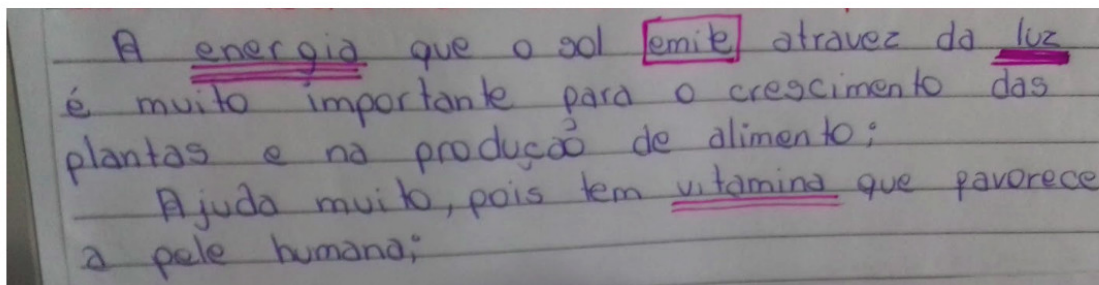 A energia que o sol emite atravez da luz
é muito importante para o crescimento das
plantas e na produção de alimento;
Ajuda muito, pois tem vitamina que favorece
a pele humana;